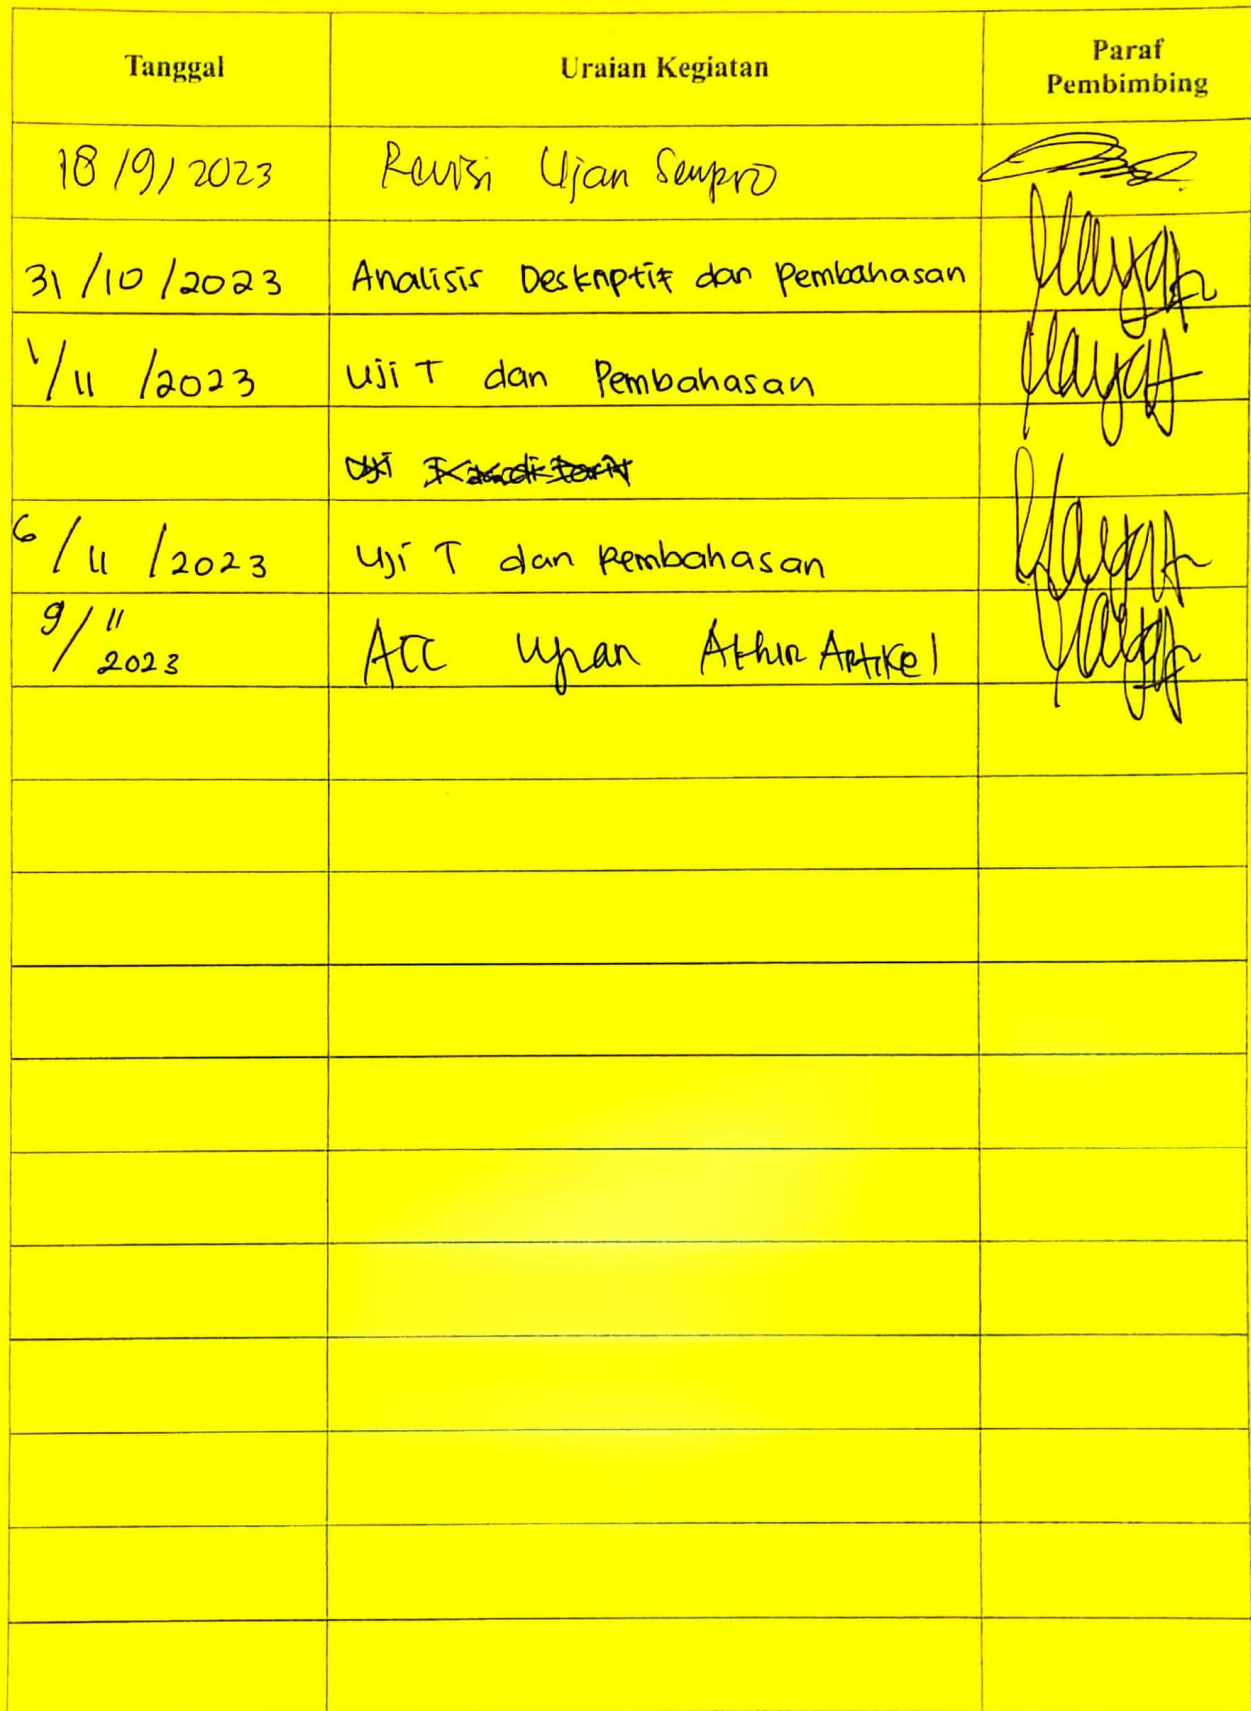 Tanggal Uraian Kegiatan Paraf
Pembimbing
18/9/2023 Revisi Ujian Sempro
31/10/2023 Analisis Deskriptif dan Pembahasan
1/11/2023 Uji T dan Pembahasan
Uji
6/11/2023 Uji T dan Pembahasan
9/11 2023 ACC Ujian Akhir Artikel